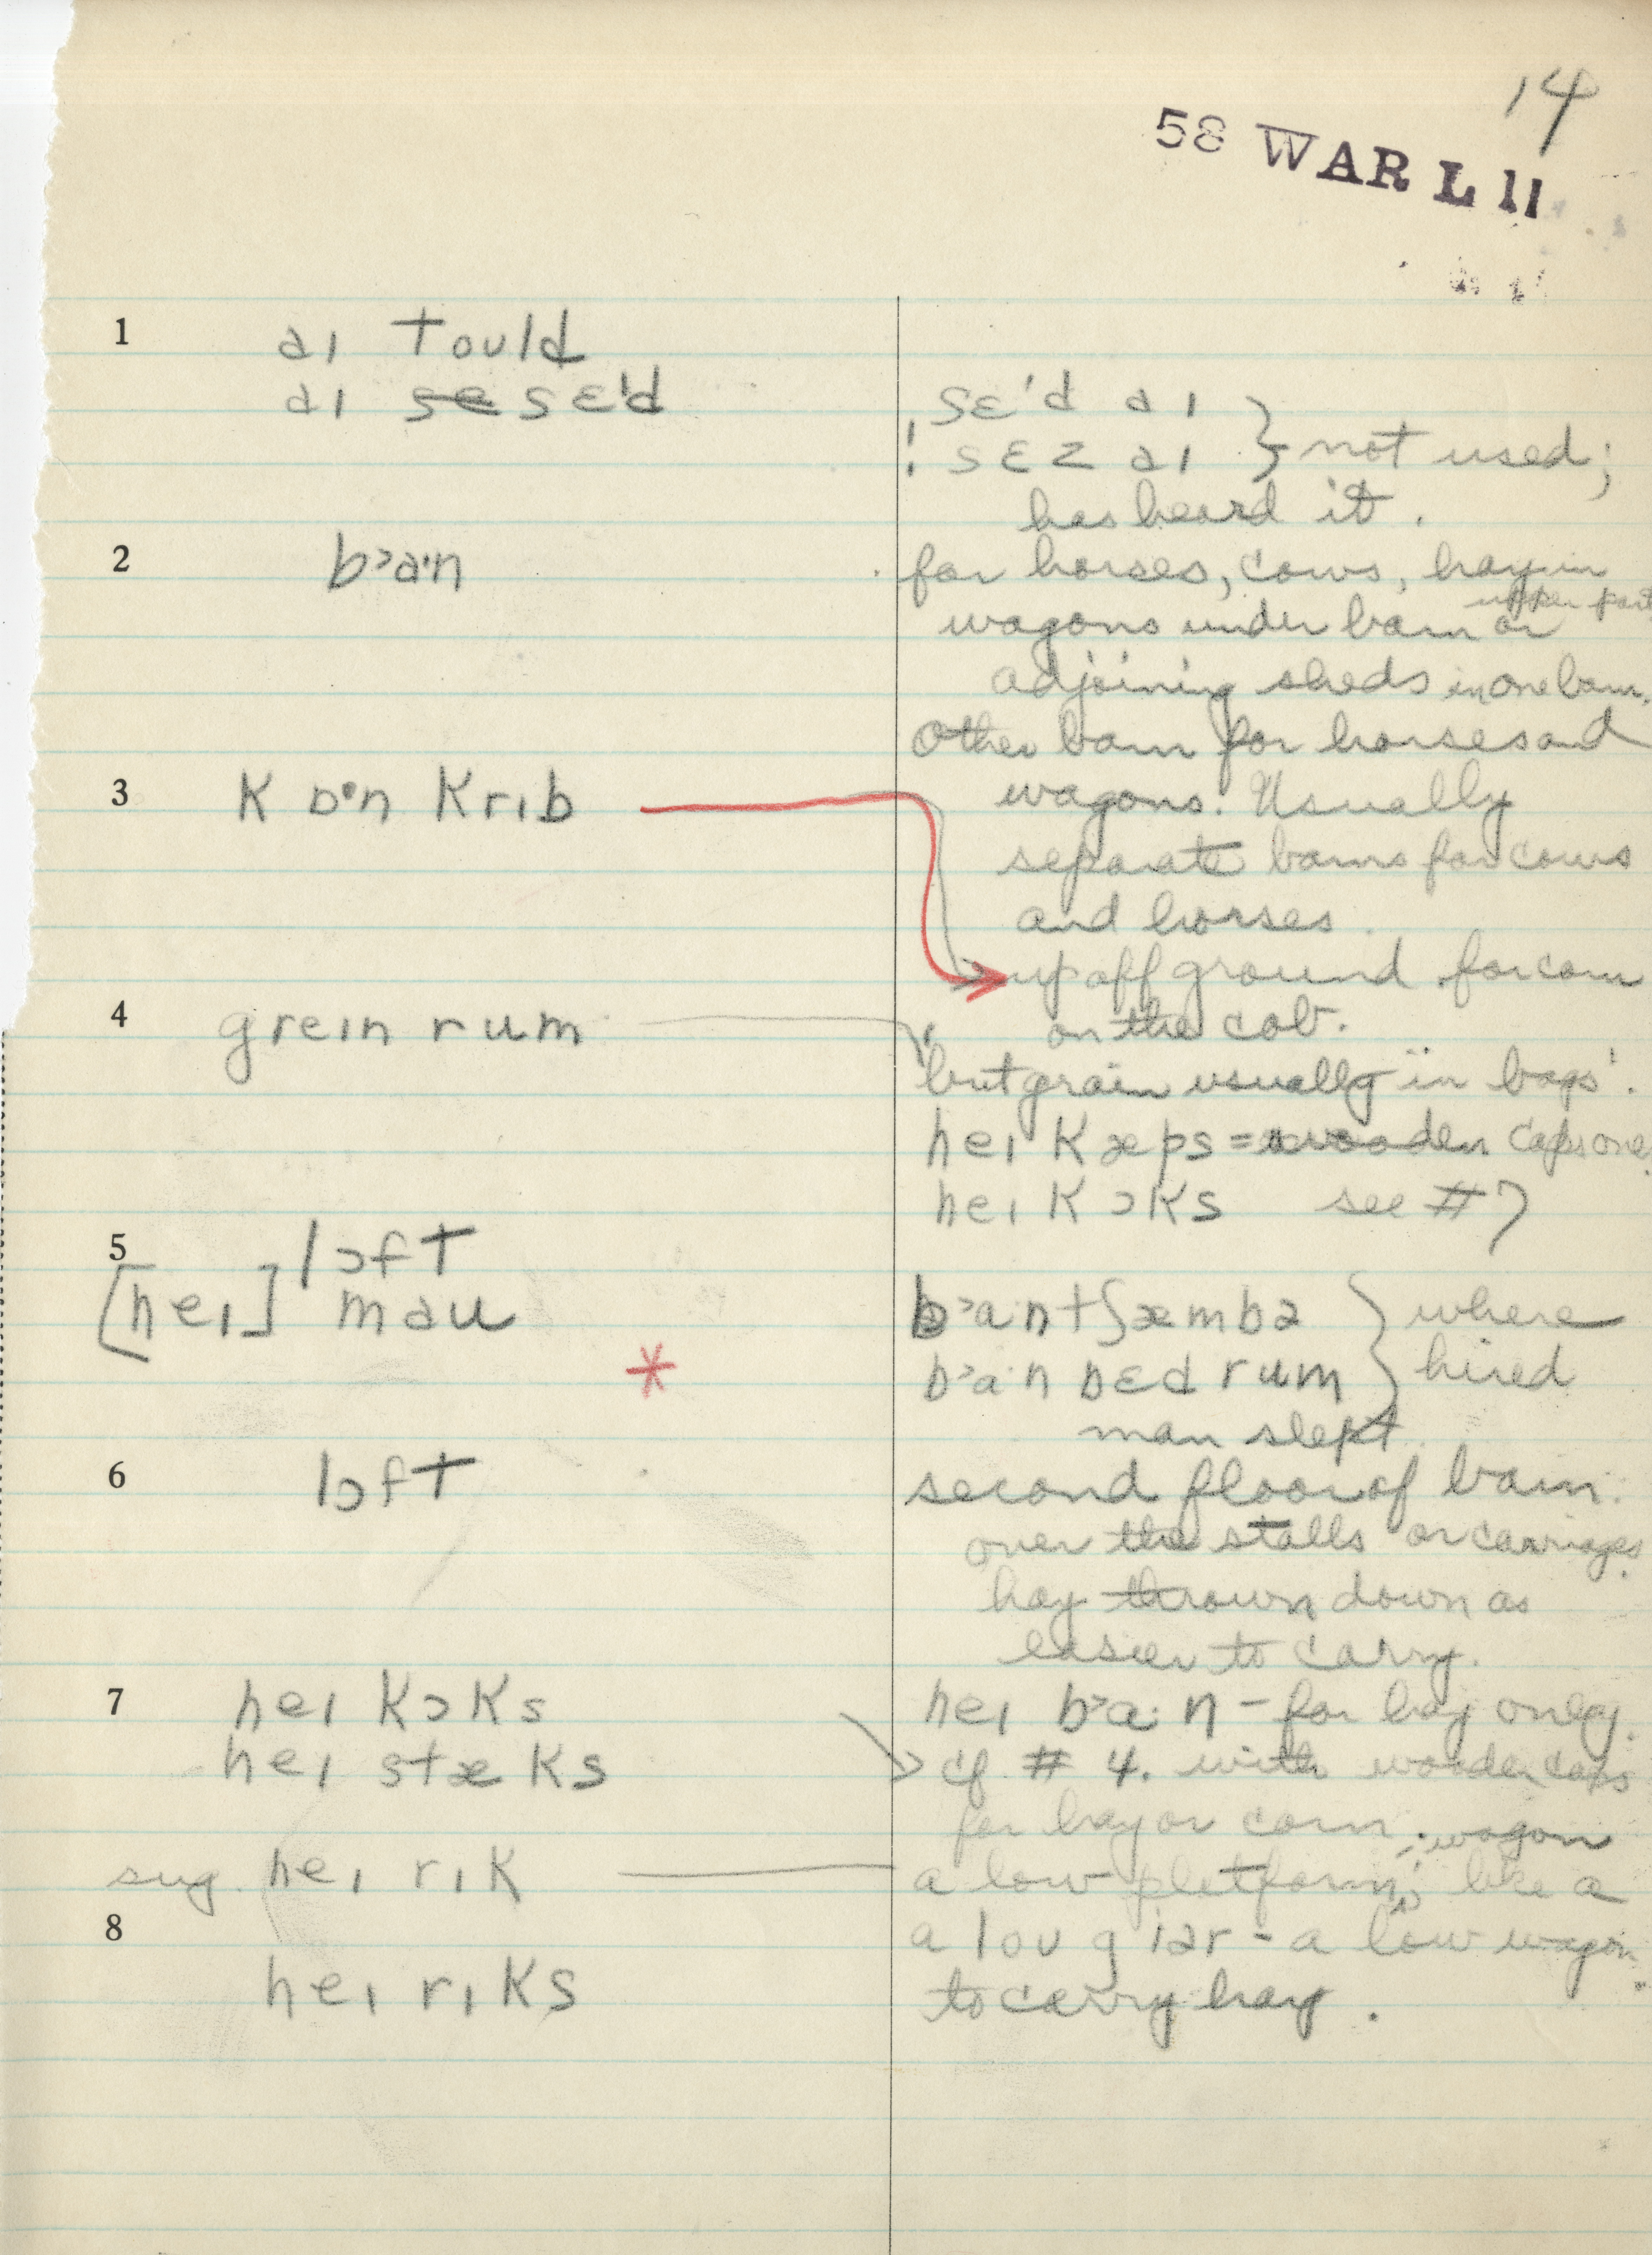 14
58 WAR L 11
1 aɪ tould
aɪ se sɛ'd
sɛ'd aɪ
! sɛz aɪ } not used;
has heard it.
2 b>a·n
for horses, cows, hay in
upper part
wagons under barn or
adjoining sheds in one barn.
Other barn for horses and
3 kɒ·n krɪb
wagons. Usually
separate barns for cows
and horses.
up off ground for corn
on the cob.
4 greɪn rum
'but grain usually in bags'.
heɪ kæps = wooden caps one
heɪ kɔks see #7
5 lɔft
[heɪ] mau
b>a·ntʃæmbə } where
b>a·n bɛdrum } hired
*
man slept
6 lɔft
second floor of barn.
over the stalls or carriages.
hay thrown down as
easier to carry.
7 heɪ kɔks
heɪ b>a·n – for hay only.
heɪ stæks
cf #4. with wooden caps
for hay or corn.
wagon
sug. heɪ rɪk
a low platform, like a
8
a lou gɪər – a low wagon
heɪ rɪks
to carry hay.